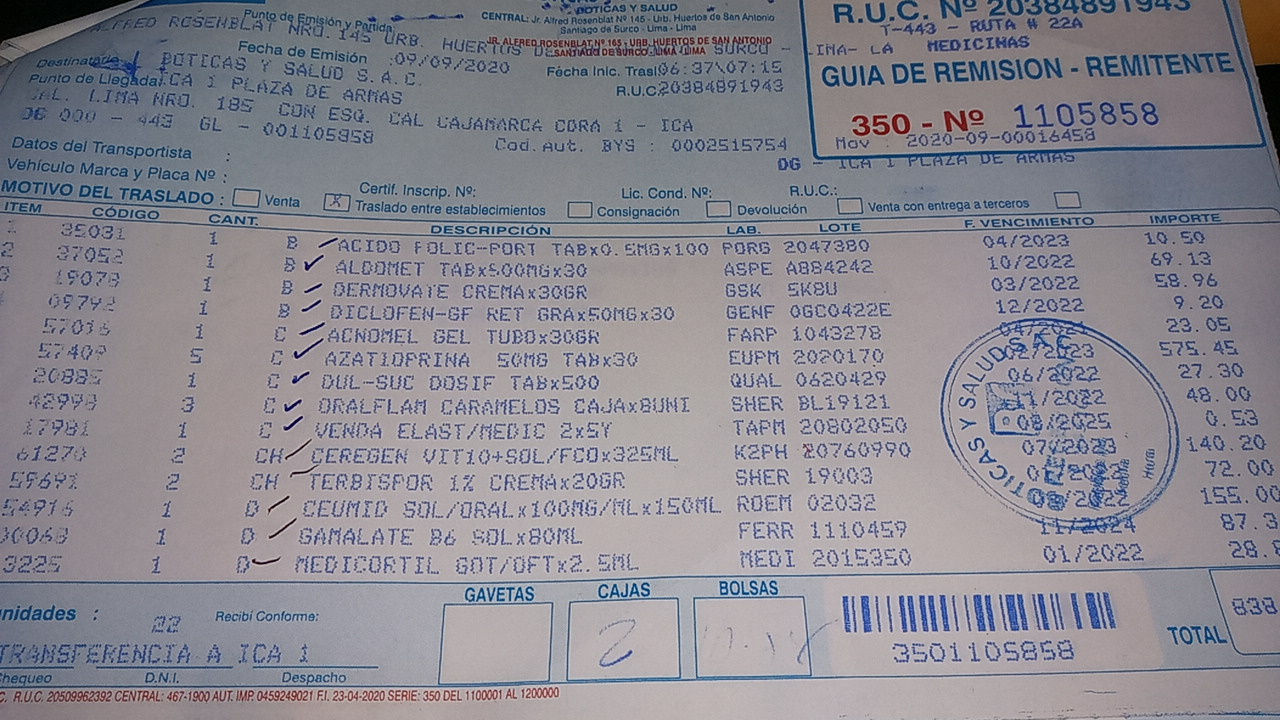 BOTICAS Y SALUD
CENTRAL: Jr. Alfred Rosenblat Nº 145 - Urb. Huertos de San Antonio
Santiago de Surco - Lima - Lima
R.U.C. Nº 20384891943
T-443 - RUTA # 22A
Punto de Emisión y Partida
ALFRED ROSENBLAT NRO. 145 URB. HUERTOS DE SAN ANTONIO SURCO - LIMA- LA MEDICINAS
JR. ALFRED ROSENBLAT Nº 165 - URB. HUERTOS DE SAN ANTONIO
SANTIAGO DE SURCO - LIMA - LIMA
Fecha de Emisión :09/09/2020 Fecha Inic. Trasl 06:37\07:15
GUIA DE REMISION - REMITENTE
Destinatario : BOTICAS Y SALUD S.A.C. R.U.C. 20384891943
Punto de Llegada: ICA 1 PLAZA DE ARMAS
CAL. LIMA NRO. 185 CON ESQ. CAL CAJAMARCA CDRA 1 - ICA
350 - Nº 1105858
DG 000 - 443 GL - 001105858 Cod.Aut. BYS : 0002515754
Mov : 2020-09-00016458
DG - ICA 1 PLAZA DE ARMAS
Datos del Transportista :
Vehículo Marca y Placa Nº : Certif. Inscrip. Nº: Lic. Cond. Nº: R.U.C.:
MOTIVO DEL TRASLADO : Venta X Traslado entre establecimientos Consignación Devolución Venta con entrega a terceros
ITEM CÓDIGO CANT. DESCRIPCIÓN LAB. LOTE F. VENCIMIENTO IMPORTE
1 35031 1 B ACIDO FOLIC-PORT TABx0.5MGx100 PORG 2047380 04/2023 10.50
2 37052 1 B ALDOMET TABx500MGx30 ASPE A884242 10/2022 69.13
19078 1 B DERMOVATE CREMAx30GR GSK SK8U 03/2022 58.96
09792 1 B DICLOFEN-GF RET GRAx50MGx30 GENF 0GC0422E 12/2022 9.20
57016 1 C ACNOMEL GEL TUBOx30GR FARP 1043278 04/2021 23.05
57409 5 C AZATIOPRINA 50MG TABx30 EUPM 2020170 02/2023 575.45
20885 1 C DUL-SUC DOSIF TABx500 QUAL 0620429 06/2022 27.30
42998 3 C ORALFLAM CARAMELOS CAJAx8UNI SHER BL19121 11/2022 48.00
17981 1 C VENDA ELAST/MEDIC 2x5Y TAPM 20802050 08/2025 0.53
61270 2 CH CEREGEN VIT10+SOL/FCOx325ML K2PH 20760990 07/2023 140.20
59691 2 CH TERBISPOR 1% CREMAx20GR SHER 19003 72.00
54916 1 D CEUMID SOL/ORALx100MG/MLx150ML ROEM 02032 155.00
00068 1 D GAMALATE B6 SOLx80ML FERR 1110459 11/2024 87.3
3225 1 D MEDICORTIL GOT/OFTx2.5ML MEDI 2015350 01/2022 28.
BOTICAS Y SALUD S.A.C.
unidades : 22 Recibí Conforme: GAVETAS CAJAS BOLSAS
2
TRANSFERENCIA A ICA 1
3501105858
TOTAL 838
Chequeo D.N.I. Despacho
C. R.U.C. 20509962392 CENTRAL: 467-1900 AUT. IMP. 0459249021 F.I. 23-04-2020 SERIE: 350 DEL 1100001 AL 1200000